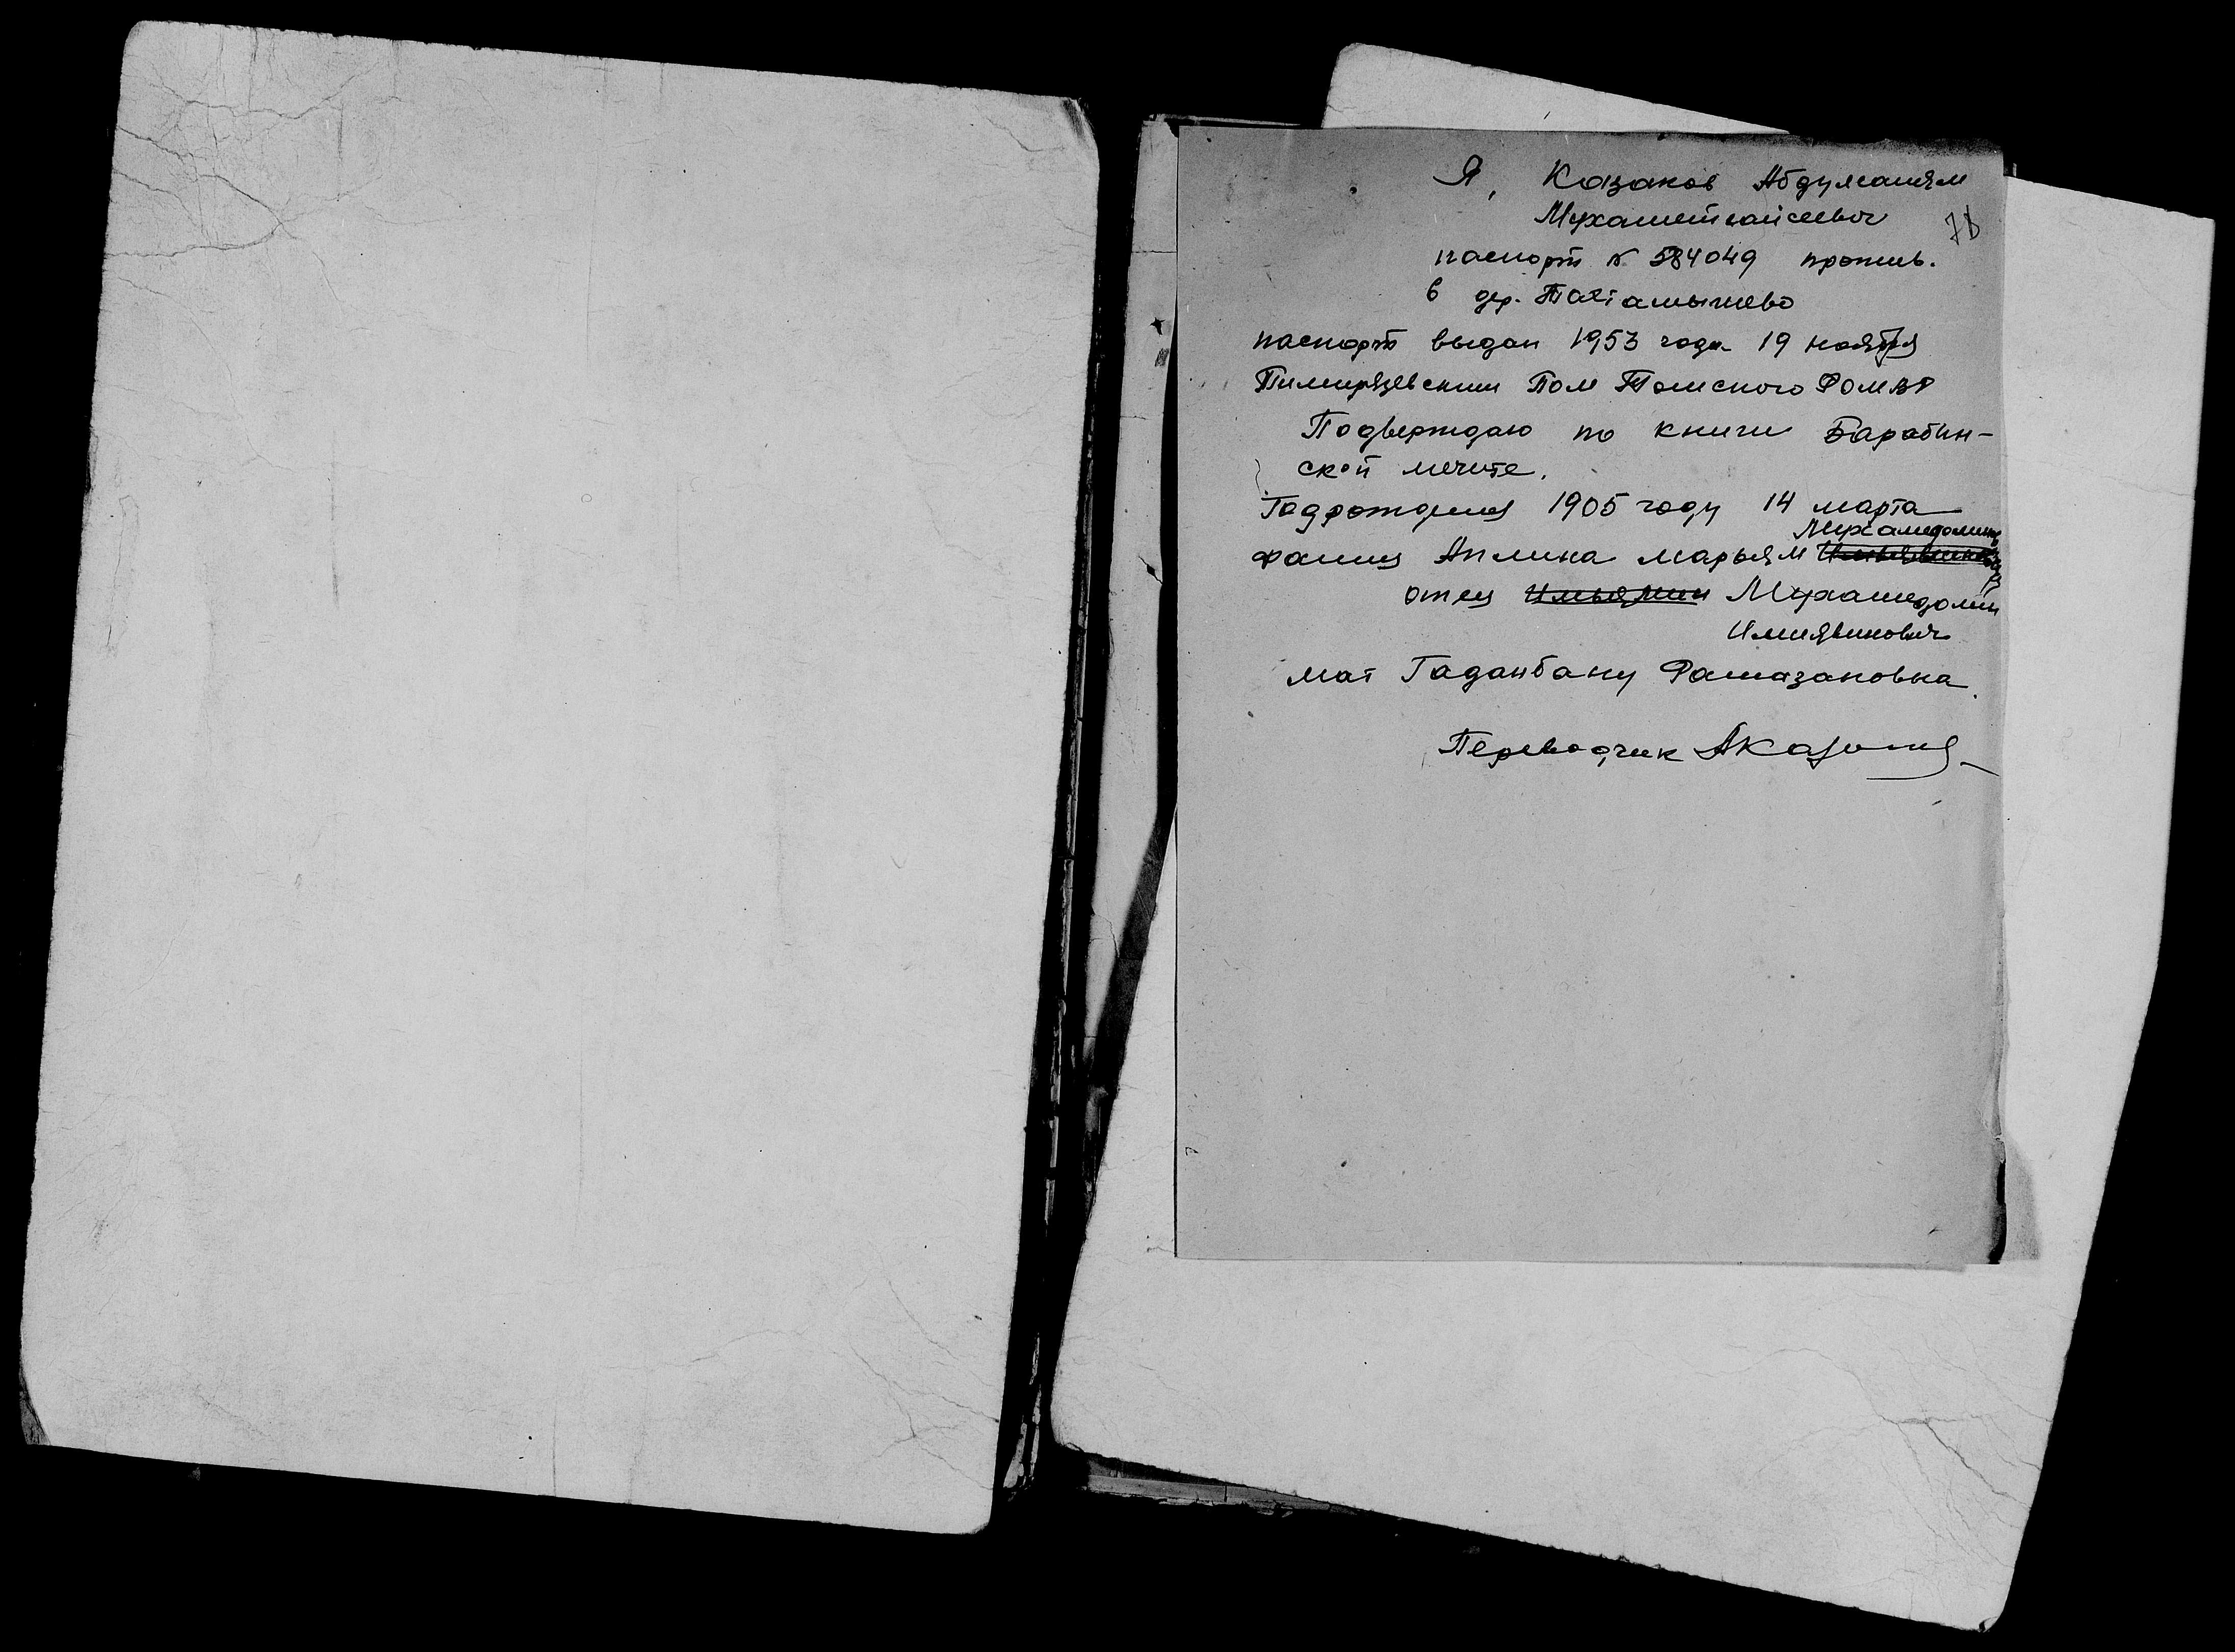 Я, Казаков Абдулсалям
Мухаметгайсевич
78
паспорт № 584049 прожив.
в дер. Тахтамышево
паспорт выдан 1953 года 19 ноября
Тимирязевским Пом Томского
Подверждаю по книги Барабин-
ской мечите.
Год рождения 1905 году 14 марта
Мухамедоминовна
фамия Аплина марьям
отец Мухамедомин
Имиявинович
мат Гаданбану Рамазановна.
Переводчик АКазаков